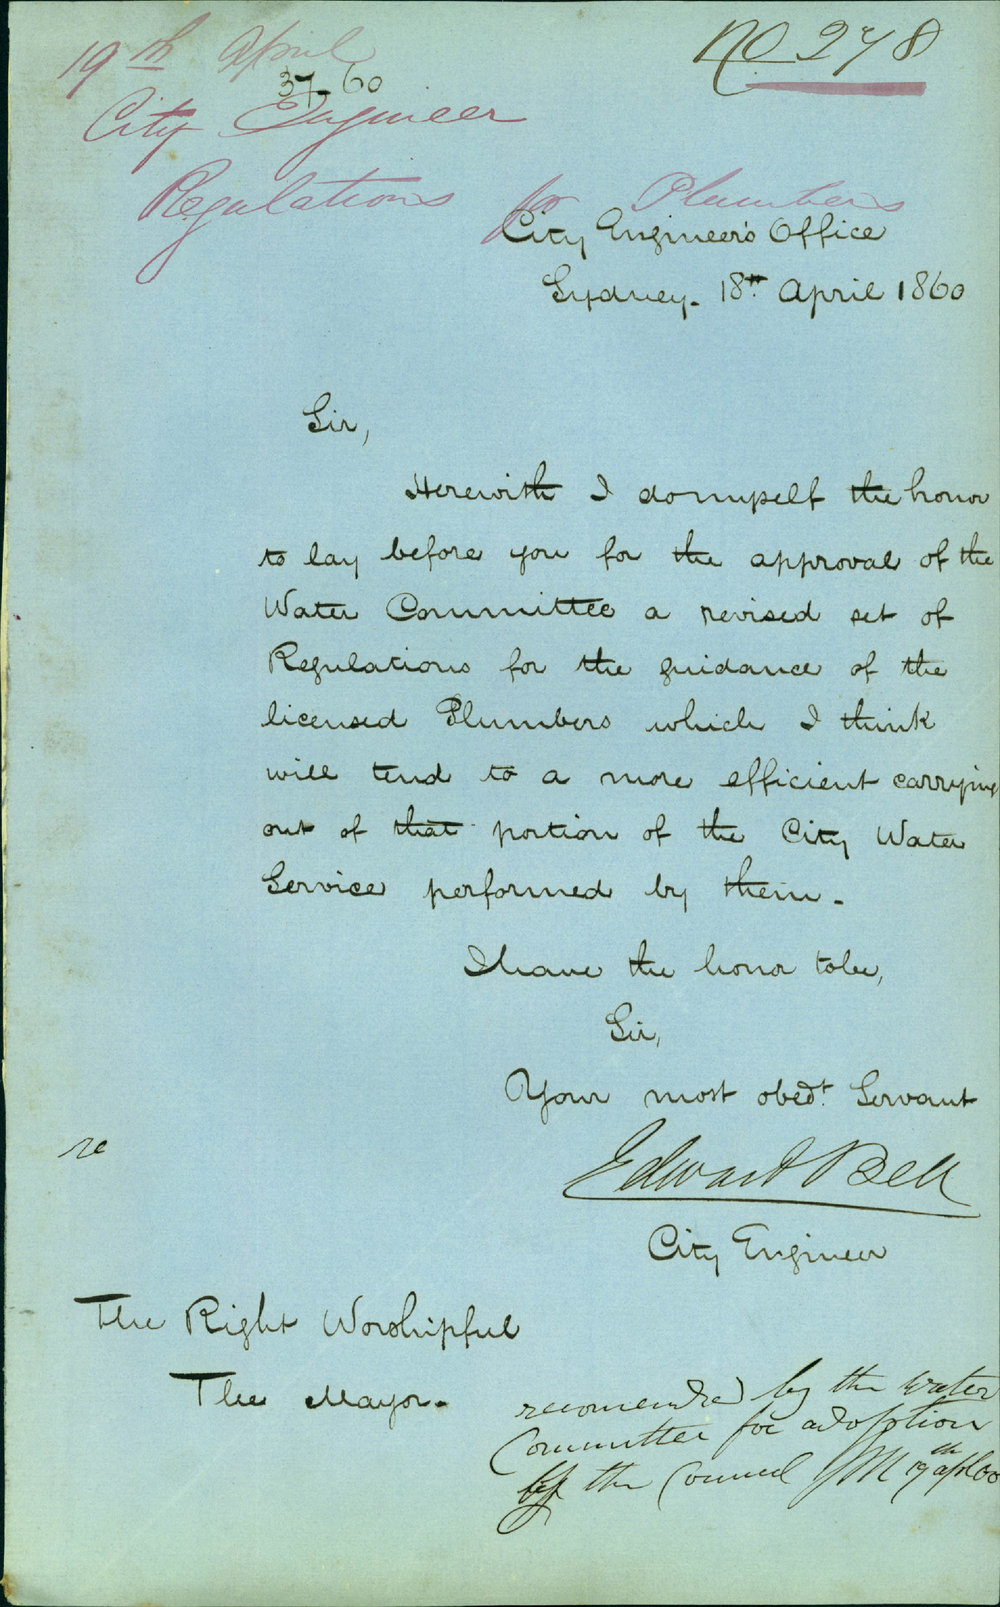 No 278
19th April
37-60
City Engineer
Regulations for Plumbers
City Engineer's Office
Sydney. 18th April 1860
Sir,
Herewith I do myself the honor
to lay before you for the approval of the
Water Committee a revised set of
Regulations for the guidance of the
licensed Plumbers which I think
will tend to a more efficient carrying
out of that portion of the City Water
Service performed by them.
I have the honor to be,
Sir,
Your most obedt. Servant
Edward Bell
City Engineer
The Right Worshipful
The Mayor.
recomended by the Water
Committee for adoption
by the Council 19th apl